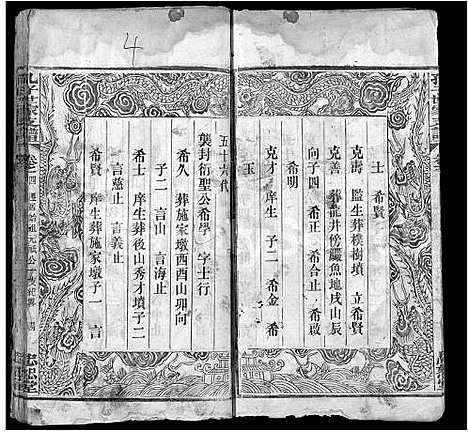 4
士　希賢
克壽　監生葬樸樹墳　立希賢
克善　葬龍井傍鱺魚地戌山辰
向子四　希正　希合止　希啟
希明
克才　庠生　子二　希金　希
玉
五十六代
襲封衍聖公希學　字士行
希久　葬施家墩酉酉山卯向
子二　言山　言海止
希士　庠生葬後山秀才墳子二
言慈止　言義止
希賢　庠生葬施家墩子一　言
孔子世家支譜
卷二